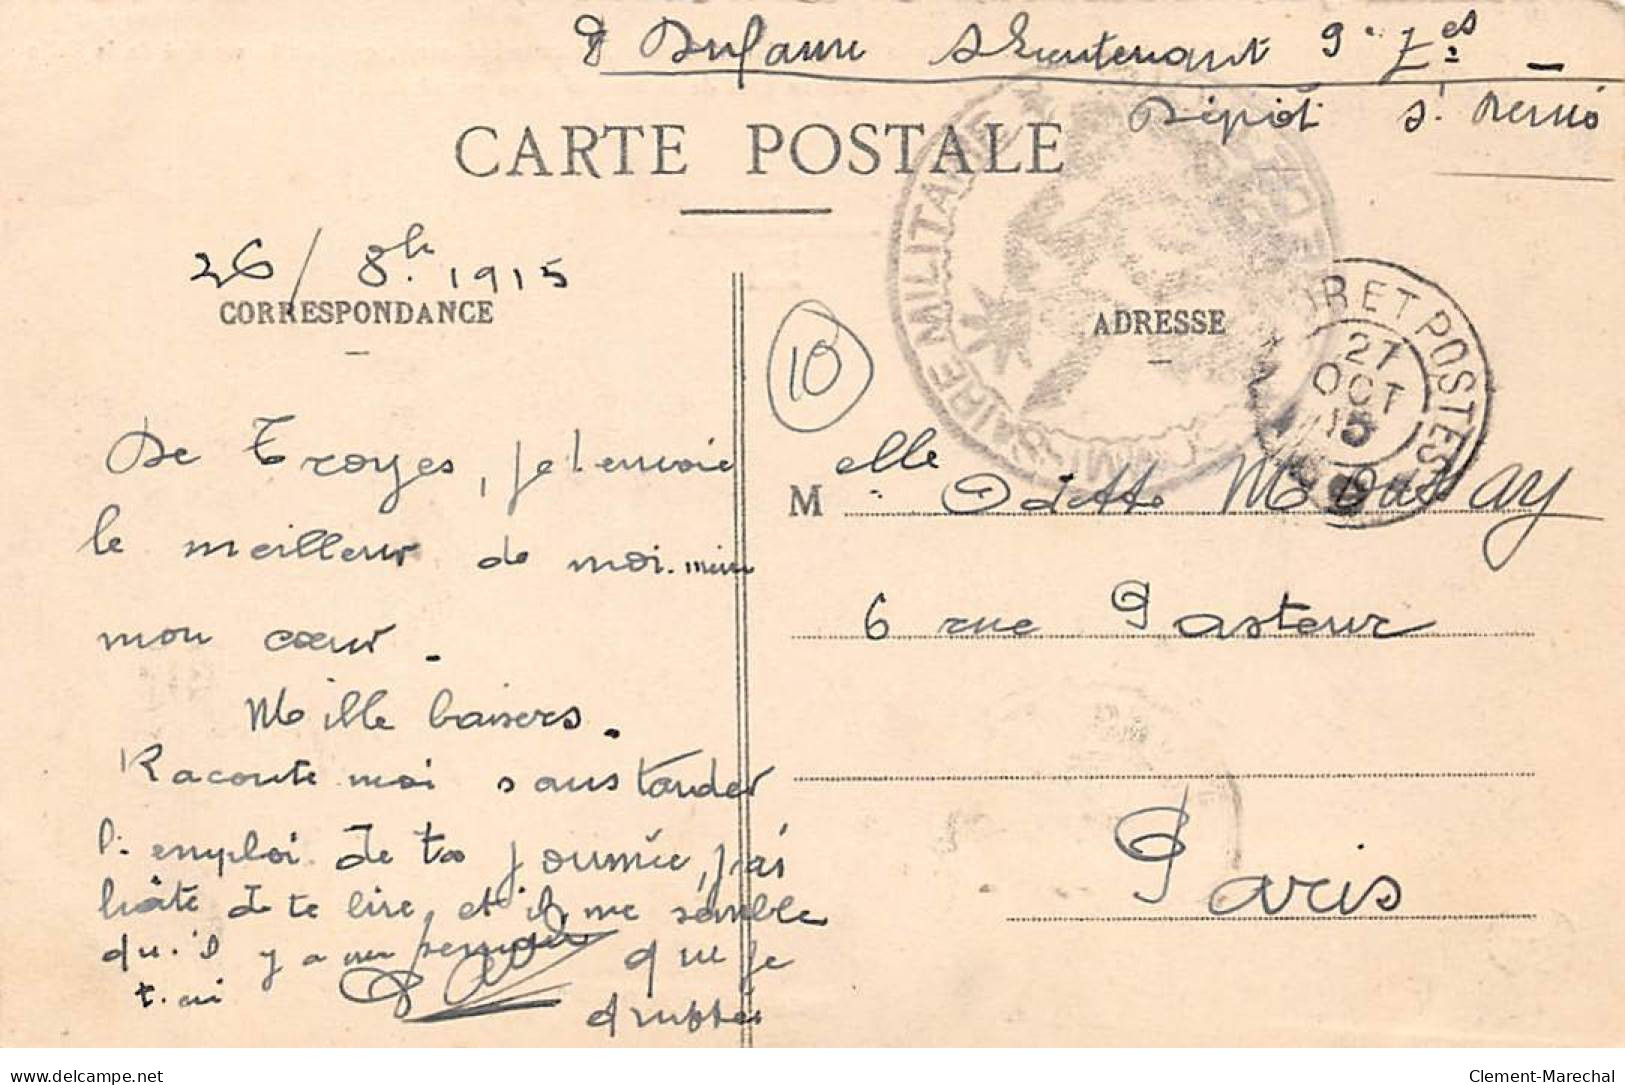 S Lieutenant 9e Zes
Dépôt St Denis
CARTE POSTALE
26/8h. 1915
CORRESPONDANCE
ADRESSE
COMMISSAIRE MILITAIRE
TRESOR ET POSTES
27
OCT
15
10
De Troyes, je t'envoie
le meilleur de moi-même
mon cœur.
Mille baisers.
Raconte moi sans tarder
l'emploi de ta journée, j'ai
hâte de te lire, et il me semble
qu'il y a un que je
t'ai quittée
M elle Odette
6 rue Pasteur
Paris
delcampe.net
Clement-Marechal